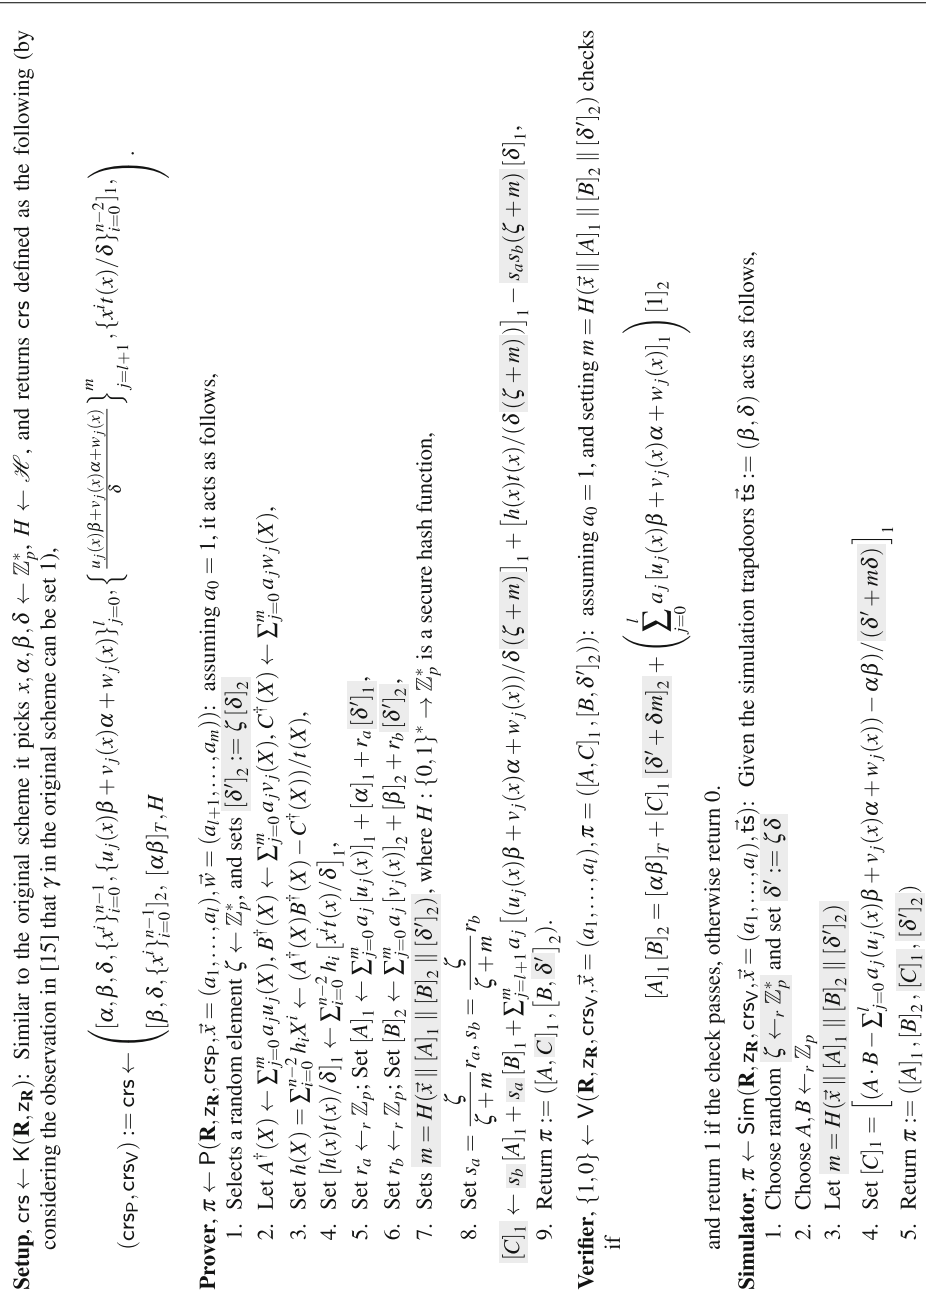 Setup, crs ← K(R, z_R): Similar to the original scheme it picks x, α, β, δ ← ℤ*_p, H ← ℋ, and returns crs defined as the following (by
considering the observation in [15] that γ in the original scheme can be set 1),
(crs_P, crs_V) := crs ← ( [α, β, δ, {x^i}_{i=0}^{n−1}, {u_j(x)β + v_j(x)α + w_j(x)}_{j=0}^{l}, { (u_j(x)β+v_j(x)α+w_j(x)) / δ }_{j=l+1}^{m}, {x^i t(x)/δ}_{i=0}^{n−2}]_1,
[β, δ, {x^i}_{i=0}^{n−1}]_2, [αβ]_T, H ) .
Prover, π ← P(R, z_R, crs_P, x⃗ = (a_1, …, a_l), w⃗ = (a_{l+1}, …, a_m)): assuming a_0 = 1, it acts as follows,
1. Selects a random element ζ ← ℤ*_p, and sets [δ′]_2 := ζ [δ]_2
2. Let A†(X) ← ∑_{j=0}^{m} a_j u_j(X), B†(X) ← ∑_{j=0}^{m} a_j v_j(X), C†(X) ← ∑_{j=0}^{m} a_j w_j(X),
3. Set h(X) = ∑_{i=0}^{n−2} h_i X^i ← (A†(X)B†(X) − C†(X))/t(X),
4. Set [h(x)t(x)/δ]_1 ← ∑_{i=0}^{n−2} h_i [x^i t(x)/δ]_1,
5. Set r_a ←_r ℤ_p; Set [A]_1 ← ∑_{j=0}^{m} a_j [u_j(x)]_1 + [α]_1 + r_a [δ′]_1,
6. Set r_b ←_r ℤ_p; Set [B]_2 ← ∑_{j=0}^{m} a_j [v_j(x)]_2 + [β]_2 + r_b [δ′]_2,
7. Sets m = H(x⃗ ‖ [A]_1 ‖ [B]_2 ‖ [δ′]_2), where H : {0,1}* → ℤ*_p is a secure hash function,
8. Set s_a = ζ/(ζ+m) r_a, s_b = ζ/(ζ+m) r_b
[C]_1 ← s_b [A]_1 + s_a [B]_1 + ∑_{j=l+1}^{m} a_j [(u_j(x)β + v_j(x)α + w_j(x))/δ(ζ+m)]_1 + [h(x)t(x)/(δ(ζ+m))]_1 − s_a s_b(ζ+m) [δ]_1,
9. Return π := ([A,C]_1, [B, δ′]_2).
Verifier, {1,0} ← V(R, z_R, crs_V, x⃗ = (a_1, …, a_l), π = ([A,C]_1, [B, δ′]_2)): assuming a_0 = 1, and setting m = H(x⃗ ‖ [A]_1 ‖ [B]_2 ‖ [δ′]_2) checks
if
[A]_1 [B]_2 = [αβ]_T + [C]_1 [δ′ + δm]_2 + ( ∑_{j=0}^{l} a_j [u_j(x)β + v_j(x)α + w_j(x)]_1 ) [1]_2
and return 1 if the check passes, otherwise return 0.
Simulator, π ← Sim(R, z_R, crs_V, x⃗ = (a_1, …, a_l), t⃗s): Given the simulation trapdoors t⃗s := (β, δ) acts as follows,
1. Choose random ζ ←_r ℤ*_p and set δ′ := ζδ
2. Choose A, B ←_r ℤ_p
3. Let m = H(x⃗ ‖ [A]_1 ‖ [B]_2 ‖ [δ′]_2)
4. Set [C]_1 = [ (A · B − ∑_{j=0}^{l} a_j(u_j(x)β + v_j(x)α + w_j(x)) − αβ)/ (δ′ + mδ) ]_1
5. Return π := ([A]_1, [B]_2, [C]_1, [δ′]_2)